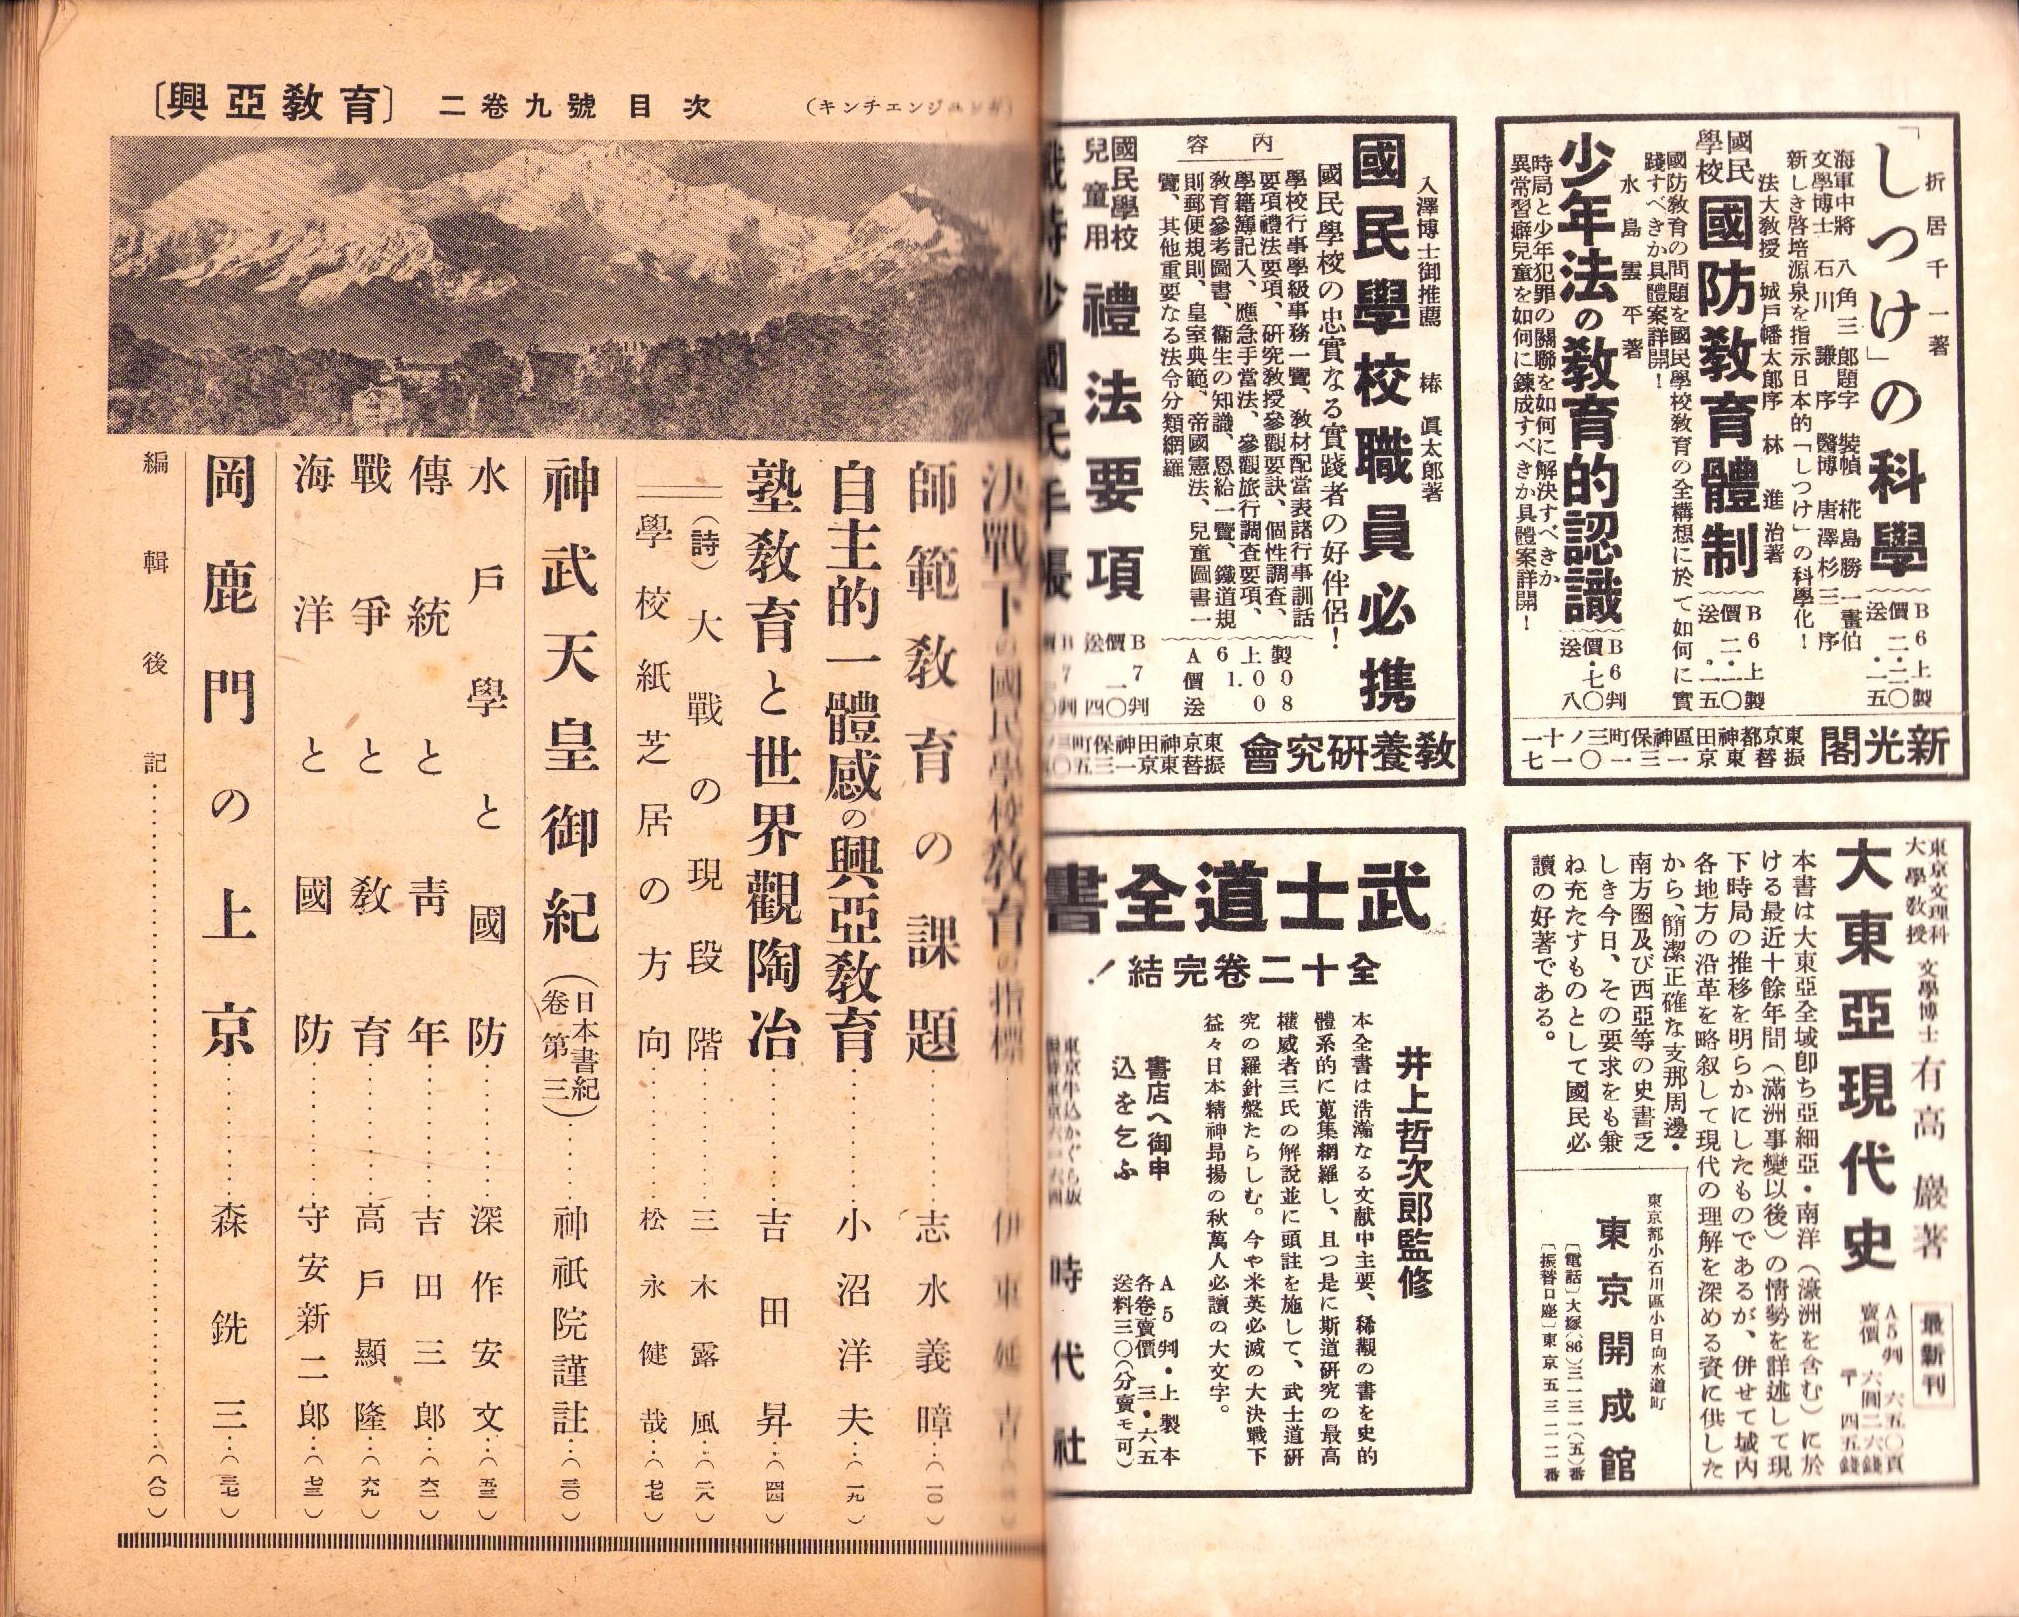 折居千一著
「しつけ」の科學
B6上製
價二・二〇
送・一五
海軍中將 八角三郎題字 裝幀 椛島勝一畫伯
文學博士 石川謙序 醫博 唐澤杉三序
新しき啓培源泉を指示日本的「しつけ」の科學化！
法大教授 城戸幡太郎序 林進治著
國民學校
國防教育體制
B6上製
價二・一〇
送・一五
國防教育の問題を國民學校教育の全構想に於て如何に實
踐すべきか具體案詳開！
水島雲平著
少年法の教育的認識
B6判
價・七〇
送八
時局と少年犯罪の關聯を如何に解決すべきか
異常習癖兒童を如何に鍊成すべきか具體案詳開！
新光閣
東京都神田區神保町三ノ十一
振替東京一三一〇一七
入澤博士御推薦 椿眞太郎著
國民學校職員必携
國民學校の忠實なる實踐者の好伴侶！
內容
學校行事學級事務一覽、教材配當表諸行事訓話
要項禮法要項、研究教授參觀要訣、個性調查、
學籍簿記入、應急手當法、參觀旅行調查要項、
教育參考圖書、衞生の知識、恩給一覽、鐵道規
則郵便規則、皇室典範、帝國憲法、兒童圖書一
覽、其他重要なる法令分類網羅
國民學校
兒童用
禮法要項
B7判
價一〇
送四
教養研究會
東京神田神保町三ノ
大東亞現代史
東京文理科
大學教授
文學博士 有高巖著
最新刊
A5判 六五〇頁
賣價 六圓二六錢
〒 四五錢
本書は大東亞全域卽ち亞細亞・南洋（濠洲を含む）に於
ける最近十餘年間（滿洲事變以後）の情勢を詳述して現
下時局の推移を明らかにしたものであるが、併せて域內
各地方の沿革を略叙して現代の理解を深める資に供した
から、簡潔正確な支那周邊・
南方圈及び西亞等の史書乏
しき今日、その要求をも兼
ね充たすものとして國民必
讀の好著である。
東京都小石川區小日向水道町
東京開成館
〔電話〕大塚(86)三一三一(五)番
〔振替口座〕東京五三二二番
武士道全書
全十二卷完結！
井上哲次郎監修
本全書は浩瀚なる文献中主要、稀觀の書を史的
體系的に蒐集網羅し、且つ是に斯道研究の最高
權威者三氏の解說並に頭註を施して、武士道研
究の羅針盤たらしむ。今や米英必滅の大決戰下
益々日本精神昂揚の秋萬人必讀の大文字。
書店へ御申
込を乞ふ
A5判・上製本
各卷賣價 三・六五
送料三〇(分賣モ可)
東京牛込かぐら坂
時代社
〔興亞教育〕 二卷九號 目次
(キンチエンジユンガ)
決戰下の國民學校教育の指標……伊東延吉
師範教育の課題……志水義暲…(一〇)
自主的一體感の興亞教育……小沼洋夫…(一九)
塾教育と世界觀陶冶……吉田昇…(四四)
(詩)大戰の現段階……三木露風…(二八)
學校紙芝居の方向……松永健哉…(七七)
神武天皇御紀(日本書紀卷第三)……神祇院謹註…(三〇)
水戶學と國防……深作安文…(五三)
傳統と靑年……吉田三郎…(六二)
戰爭と教育……高戶顯隆…(六九)
海洋と國防……守安新二郎…(七三)
岡鹿門の上京……森銑三…(三七)
編輯後記……(八〇)